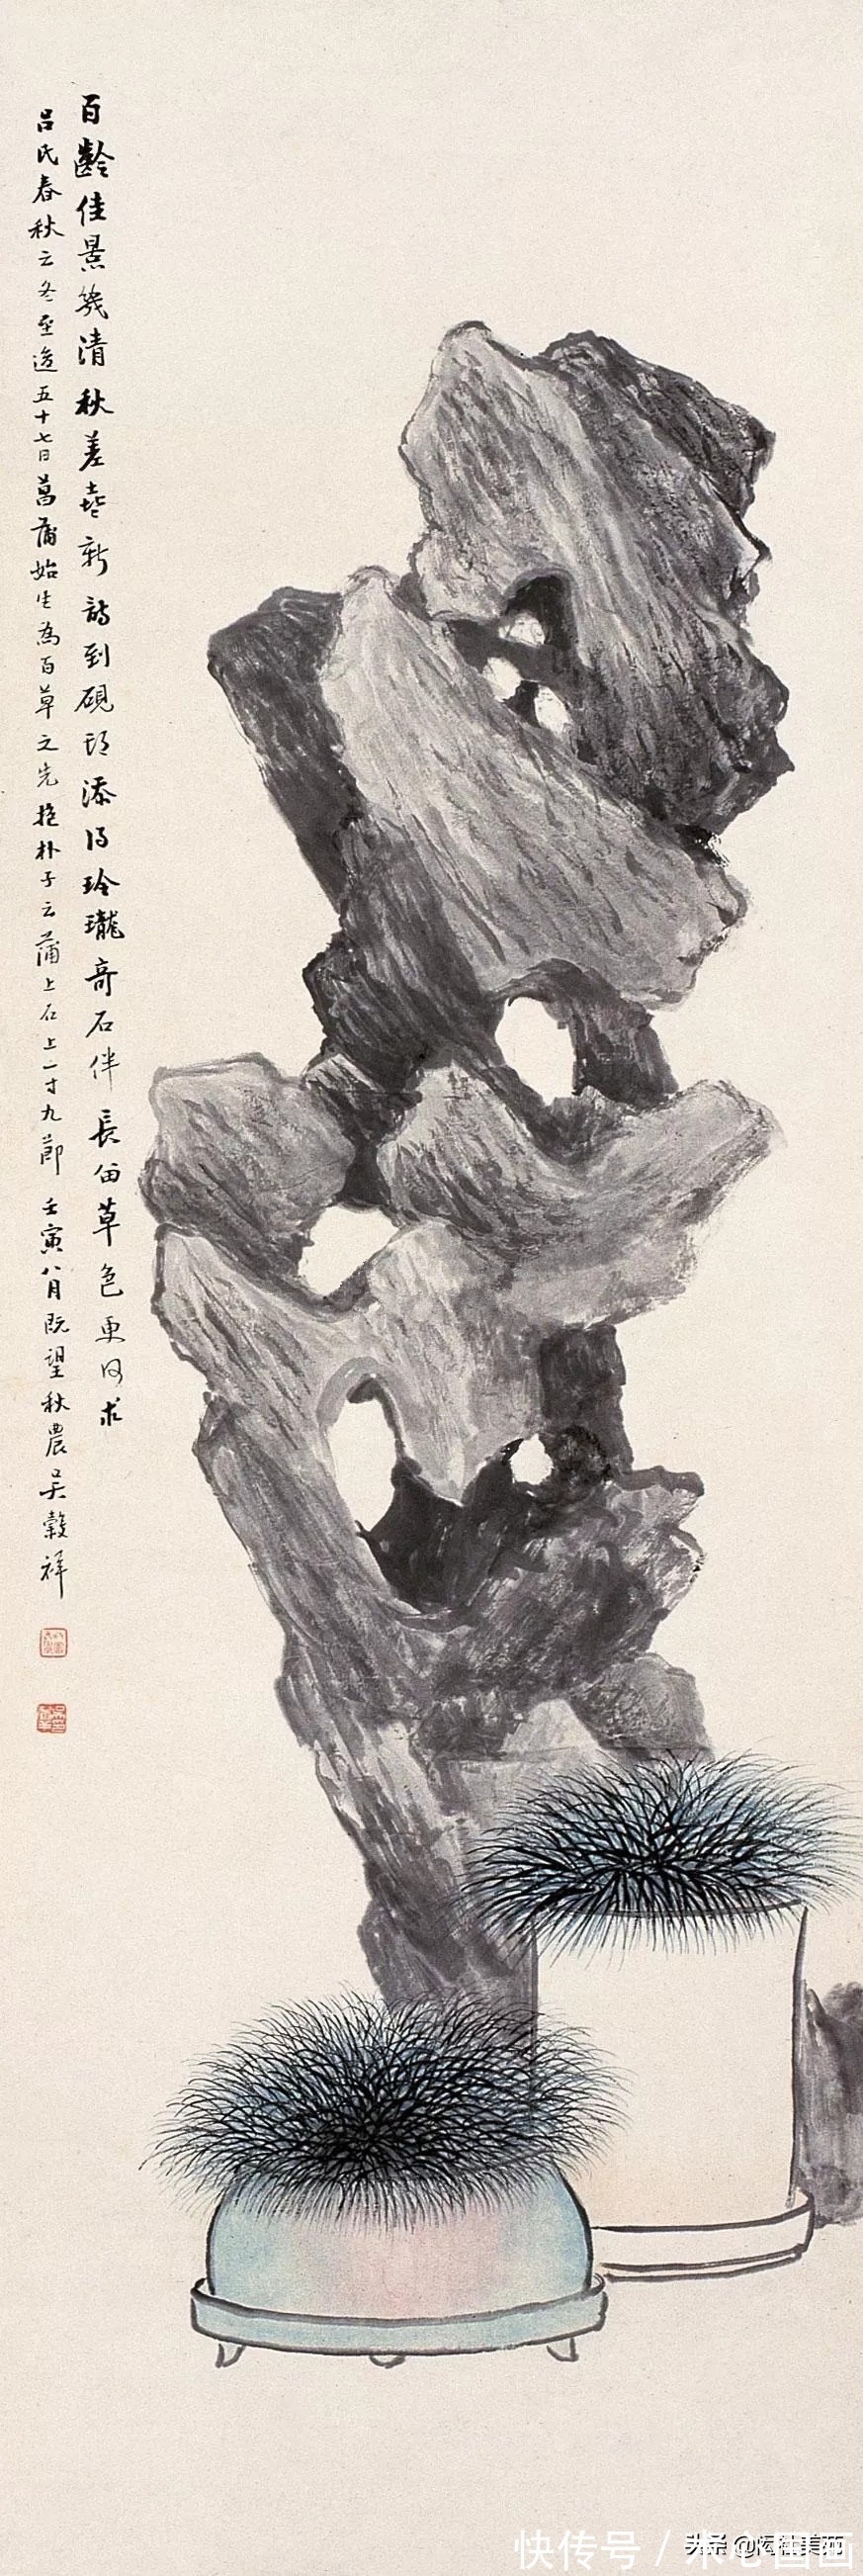 百齡佳景幾清秋差喜新詩到硯頭添得玲瓏奇石伴長留草色更何求
呂氏春秋云冬至後五十七日菖蒲始生為百草之先抱朴子云蒲上石上一寸九節 壬寅八月既望秋農吳穀祥
快传号 /
头条 @